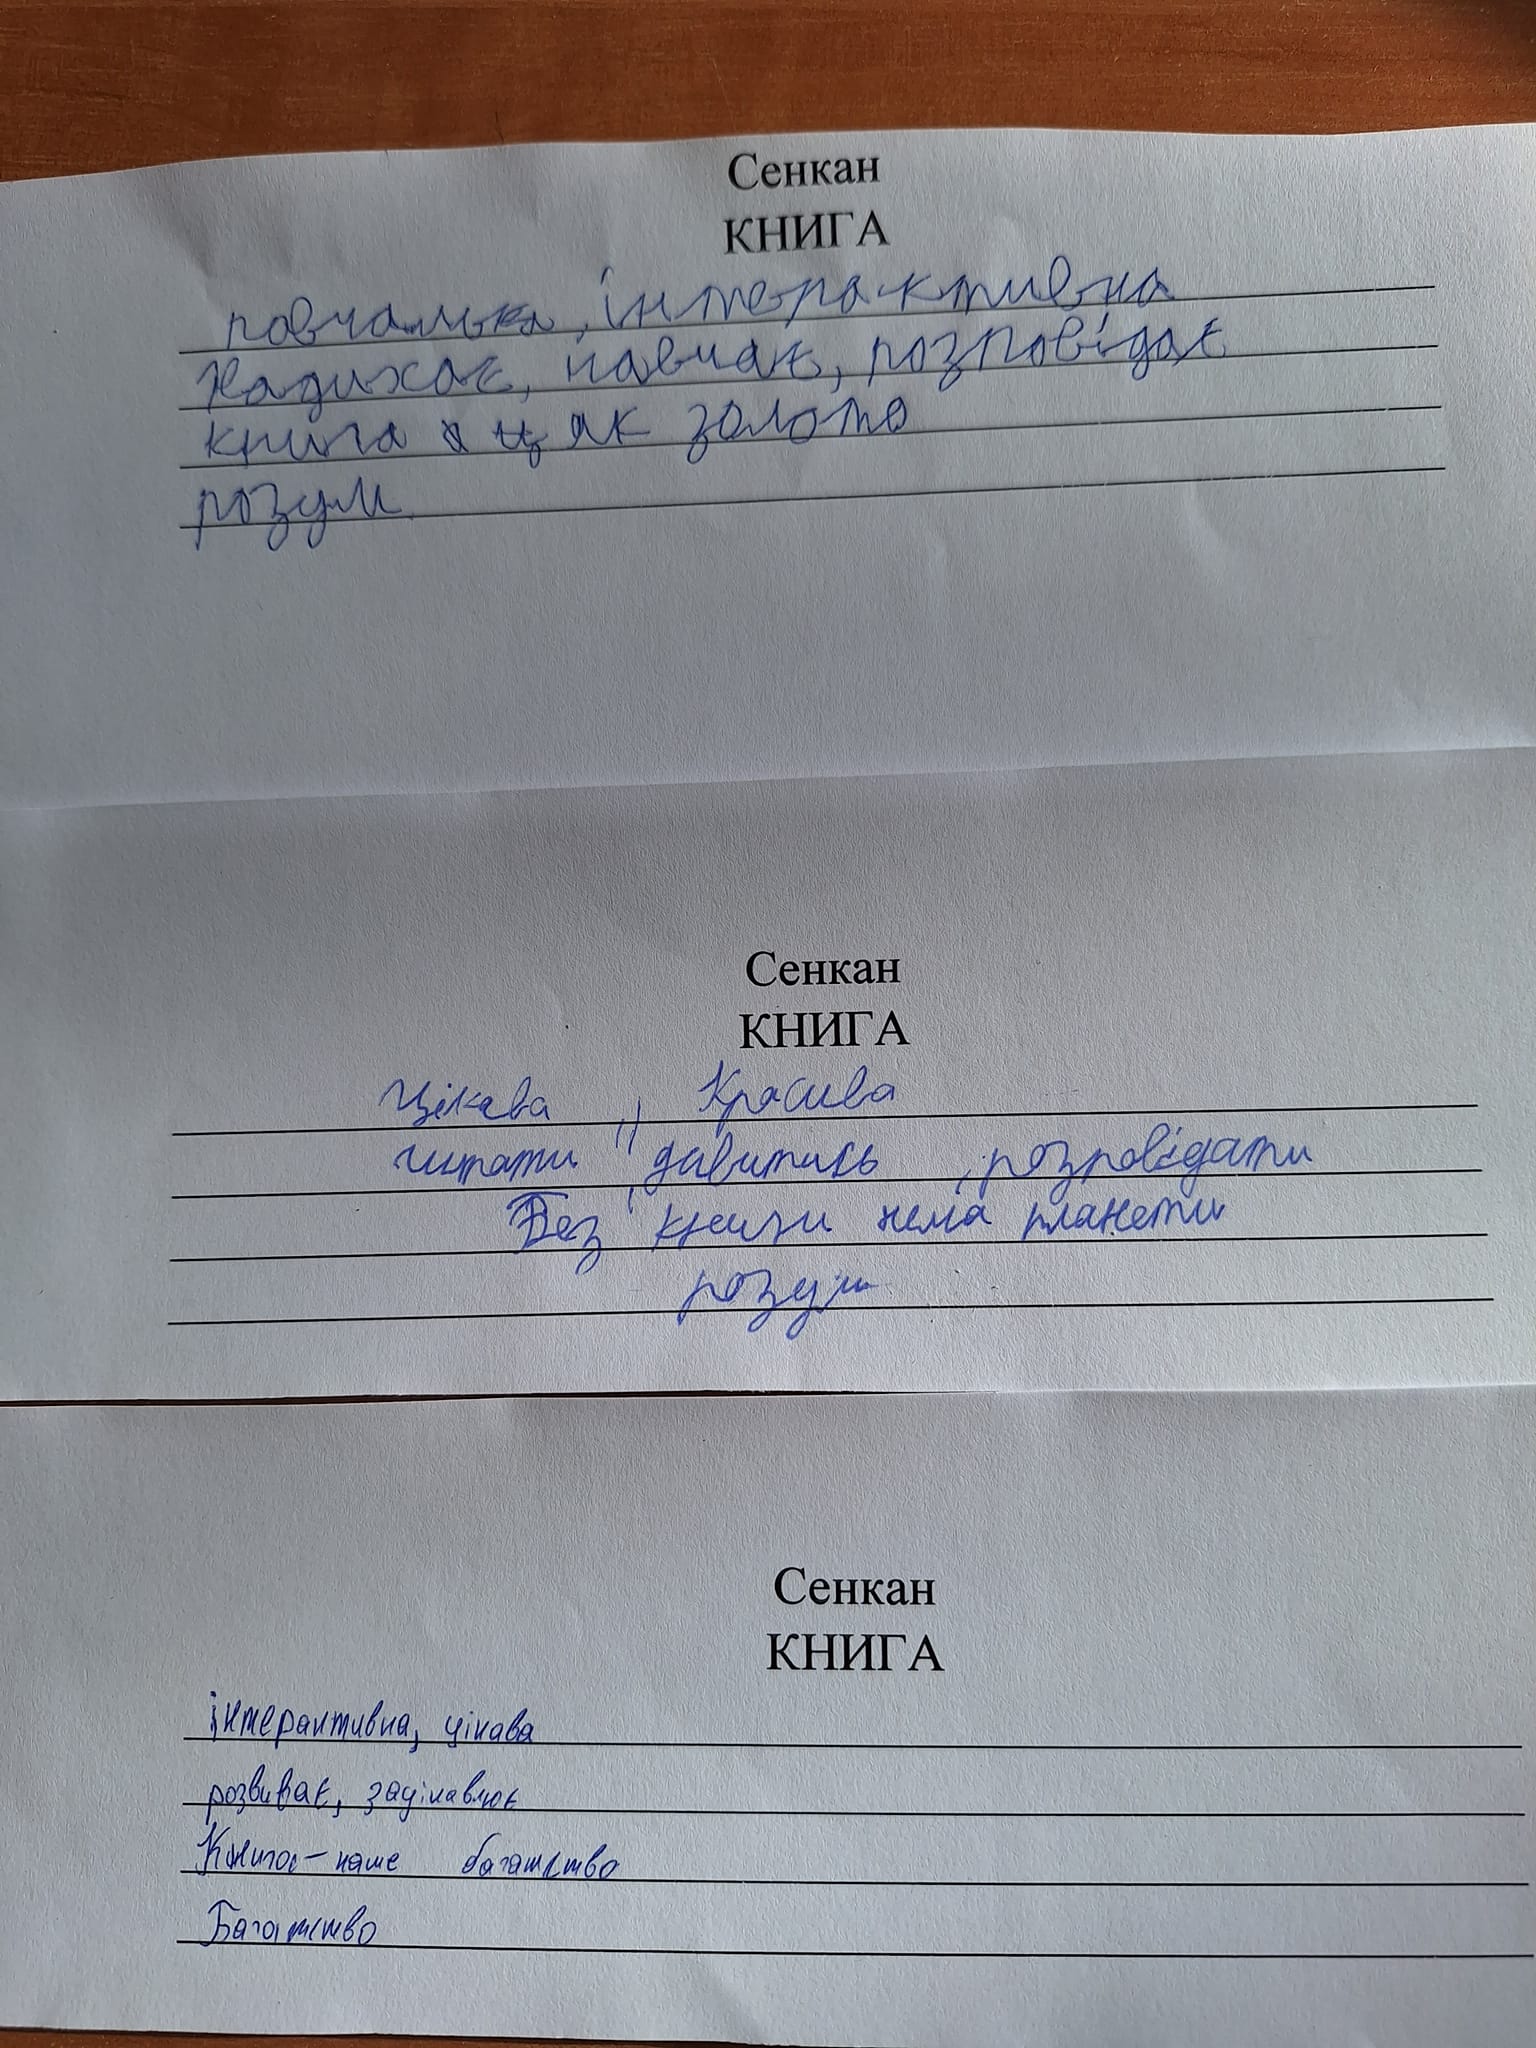 Сенкан
КНИГА
повчальна, інтерактивна
Надихає, навчає, розповідає
книга як золото
розум
Сенкан
КНИГА
Цікава, Красива
читати, дивитись, розповідати
Без книги нема планети
розум
Сенкан
КНИГА
інтерактивна, цікава
розвиває, зацікавлює
Книга - наше багатство
Багатство